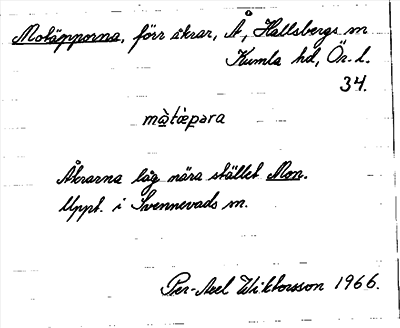 Motäpporna, förr åkrar, Å, Hallsbergs sn
Kumla hd, Ör. l.
34.
mo̱tæ̀pəra
Åkrarna låg nära stället Mon.
Uppt. i Svennevads sn.
Per-Axel Wiktorsson 1966.